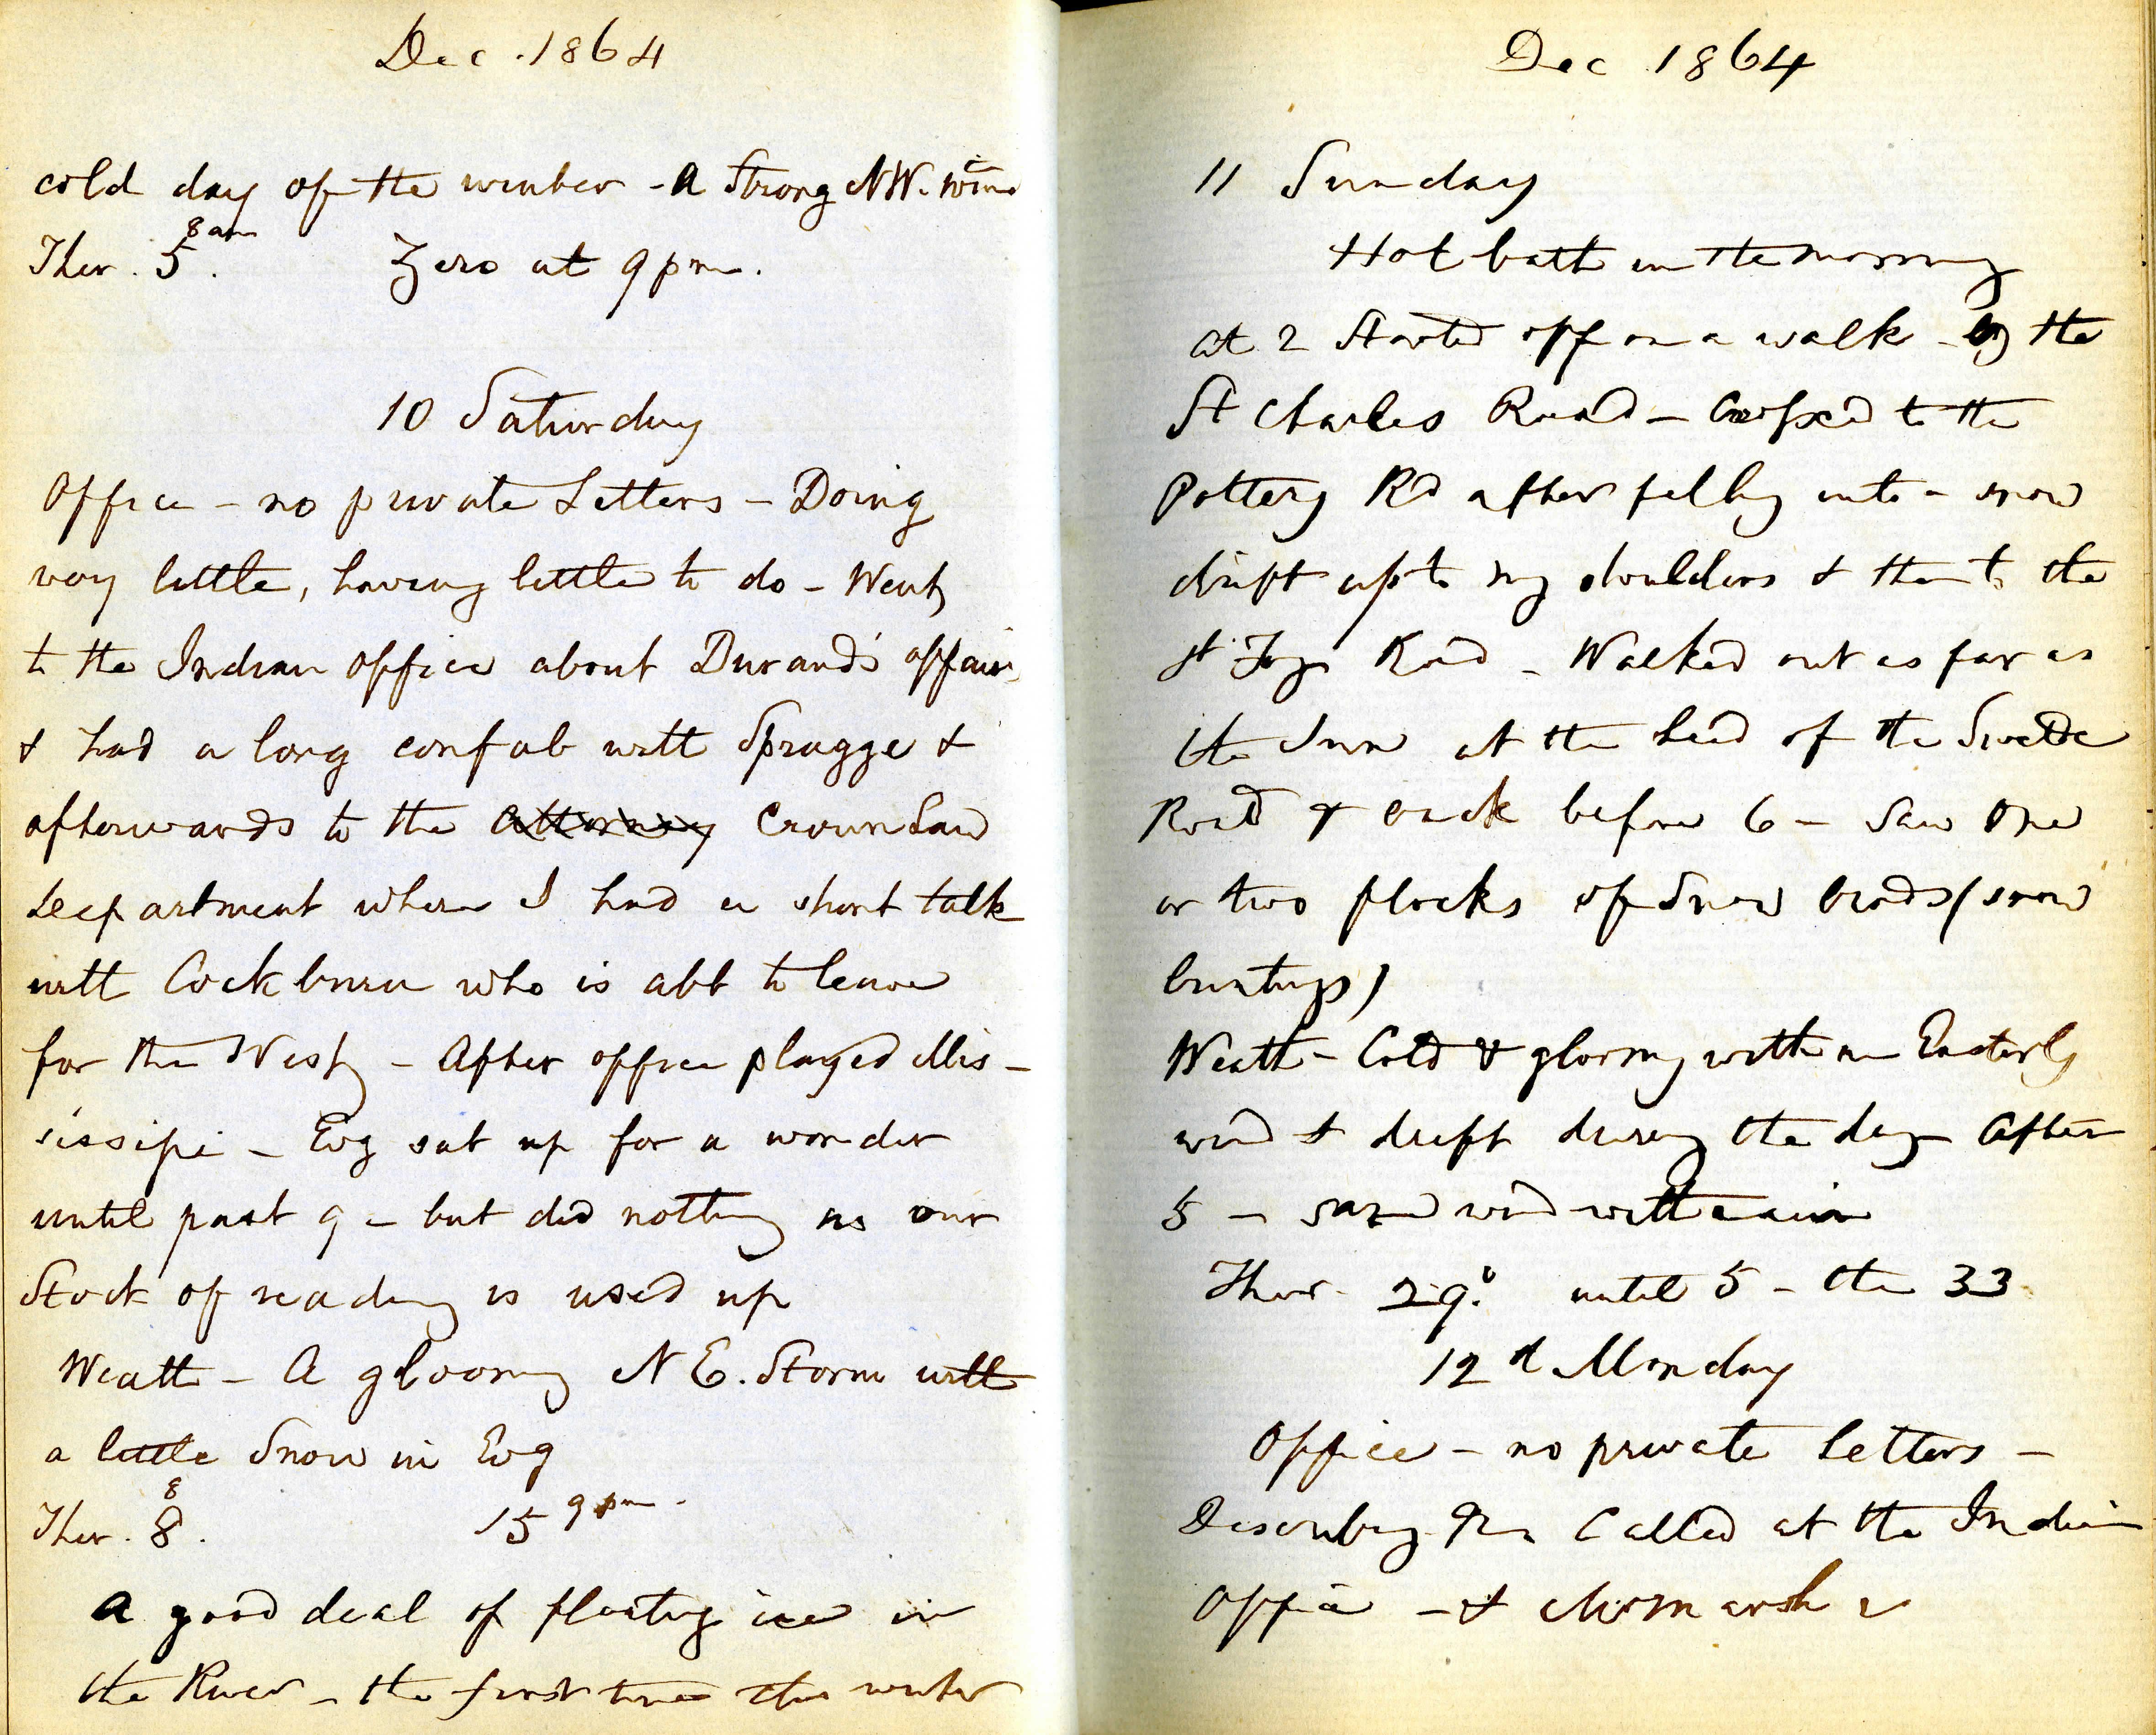 Dec. 1864
cold day of the winter - A Strong NW. wind
8 am
Ther. 5. Zero at 9 pm.
10 Saturday
Office - no private Letters - Doing
very little, having little to do - Went
to the Indian Office about Durand's affair
& had a long confab with Spragge &
afterwards to the Attorney Crown Law
Department where I had a short talk
with Cockburn who is abt to leave
for the West - After office played Mis-
sissipi - Evg sat up for a wonder
until past 9 - but did nothing as our
Stock of reading is used up
Weath - A gloomy N E. Storm with
a little Snow in Evg
8
Ther. 8. 15 9 pm -
A good deal of floating ice in
the River - the first time this winter
Dec 1864
11 Sunday
Hot bath in the morning
at 2 Started off on a walk - by the
St Charles Road - Crossed to the
Pottery Rd after falling into a snow
drift up to my shoulders & then to the
St Foys Road - Walked out as far as
the Inn at the head of the
Road & back before 6 - Saw one
or two flocks of Snow birds (snow
buntings)
Weath - Cold & gloomy with an Easterly
wind & drift during the day After
5 - same wind with rain
Ther. 29.° until 5 - the 33
12 d Monday
Office - no private Letters -
Describing Called at the Indian
Office - &